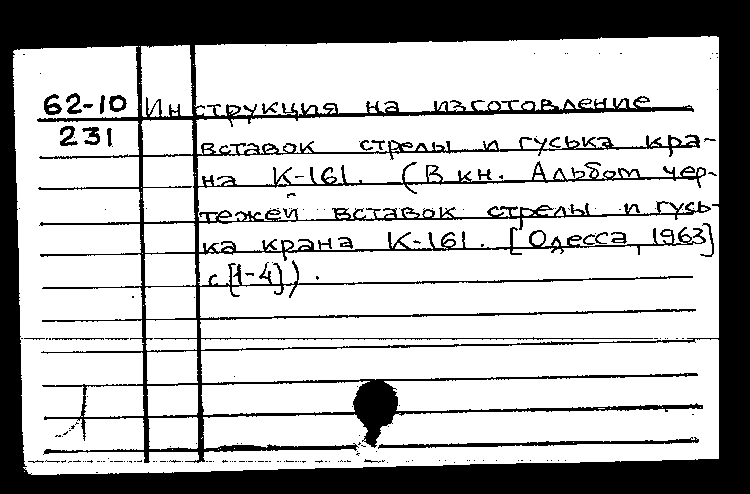 62-10 Инструкция на изготовление
231 вставок стрелы и гуська кра-
на К-161. (В кн. Альбом чер-
тежей вставок стрелы и гусь-
ка крана К-161. [Одесса, 1963]
с [1-4]).
1